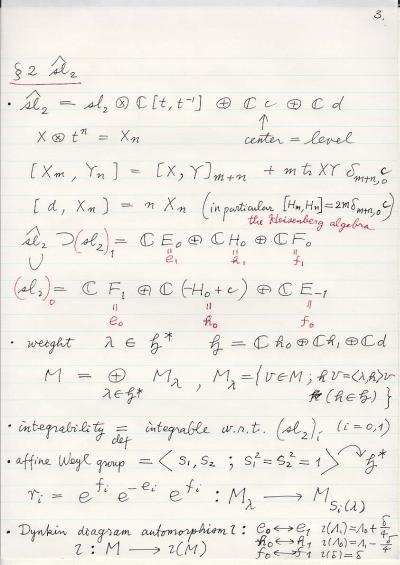 3.
§2 ŝl₂
· ŝl₂ = sl₂ ⊗ ℂ[t, t⁻¹] ⊕ ℂc ⊕ ℂd
X ⊗ tⁿ = Xₙ ↑ center = level
[Xₘ, Yₙ] = [X, Y]ₘ₊ₙ + m tr XY δₘ₊ₙ,₀ c
[d, Xₙ] = n Xₙ (in particular [Hₘ, Hₙ] = 2m δₘ₊ₙ,₀ c)
the Heisenberg algebra
ŝl₂ ⊃ (sl₂)₁ = ℂE₀ ⊕ ℂH₀ ⊕ ℂF₀
∪ = e₁ = h₁ = f₁
(sl₂)₀ = ℂF₁ ⊕ ℂ(-H₀+c) ⊕ ℂE₋₁
= e₀ = h₀ = f₀
· weight λ ∈ 𝔥* 𝔥 = ℂh₀ ⊕ ℂh₁ ⊕ ℂd
M = ⊕_{λ∈𝔥*} M_λ , M_λ = {v ∈ M ; hv = <λ,h>v
(h ∈ 𝔥) }
· integrability =_{def} integrable w.r.t. (sl₂)ᵢ (i = 0, 1)
· affine Weyl group = < s₁, s₂ ; s₁² = s₂² = 1 > ↷ 𝔥*
rᵢ = e^{fᵢ} e^{-eᵢ} e^{fᵢ} : M_λ → M_{sᵢ(λ)}
· Dynkin diagram automorphism ι : e₀ ↔ e₁ ι(Λ₁) = Λ₀ + δ/4
h₀ ↔ h₁ ι(Λ₀) = Λ₁ - δ/4
ι : M → ι(M) f₀ ↔ f₁ ι(δ) = δ